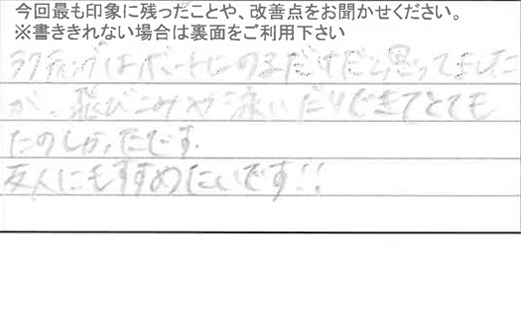 今回最も印象に残ったことや、改善点をお聞かせください。
※書ききれない場合は裏面をご利用下さい
ラフティングはボートにのるだけだと思ってました
が、飛びこみや泳いだりできてとても
たのしかったです。
友人にもすすめたいです!!